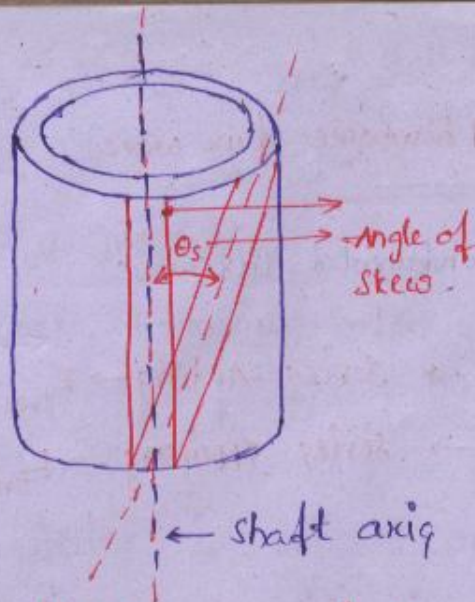 θs
Angle of
skew
← shaft axis